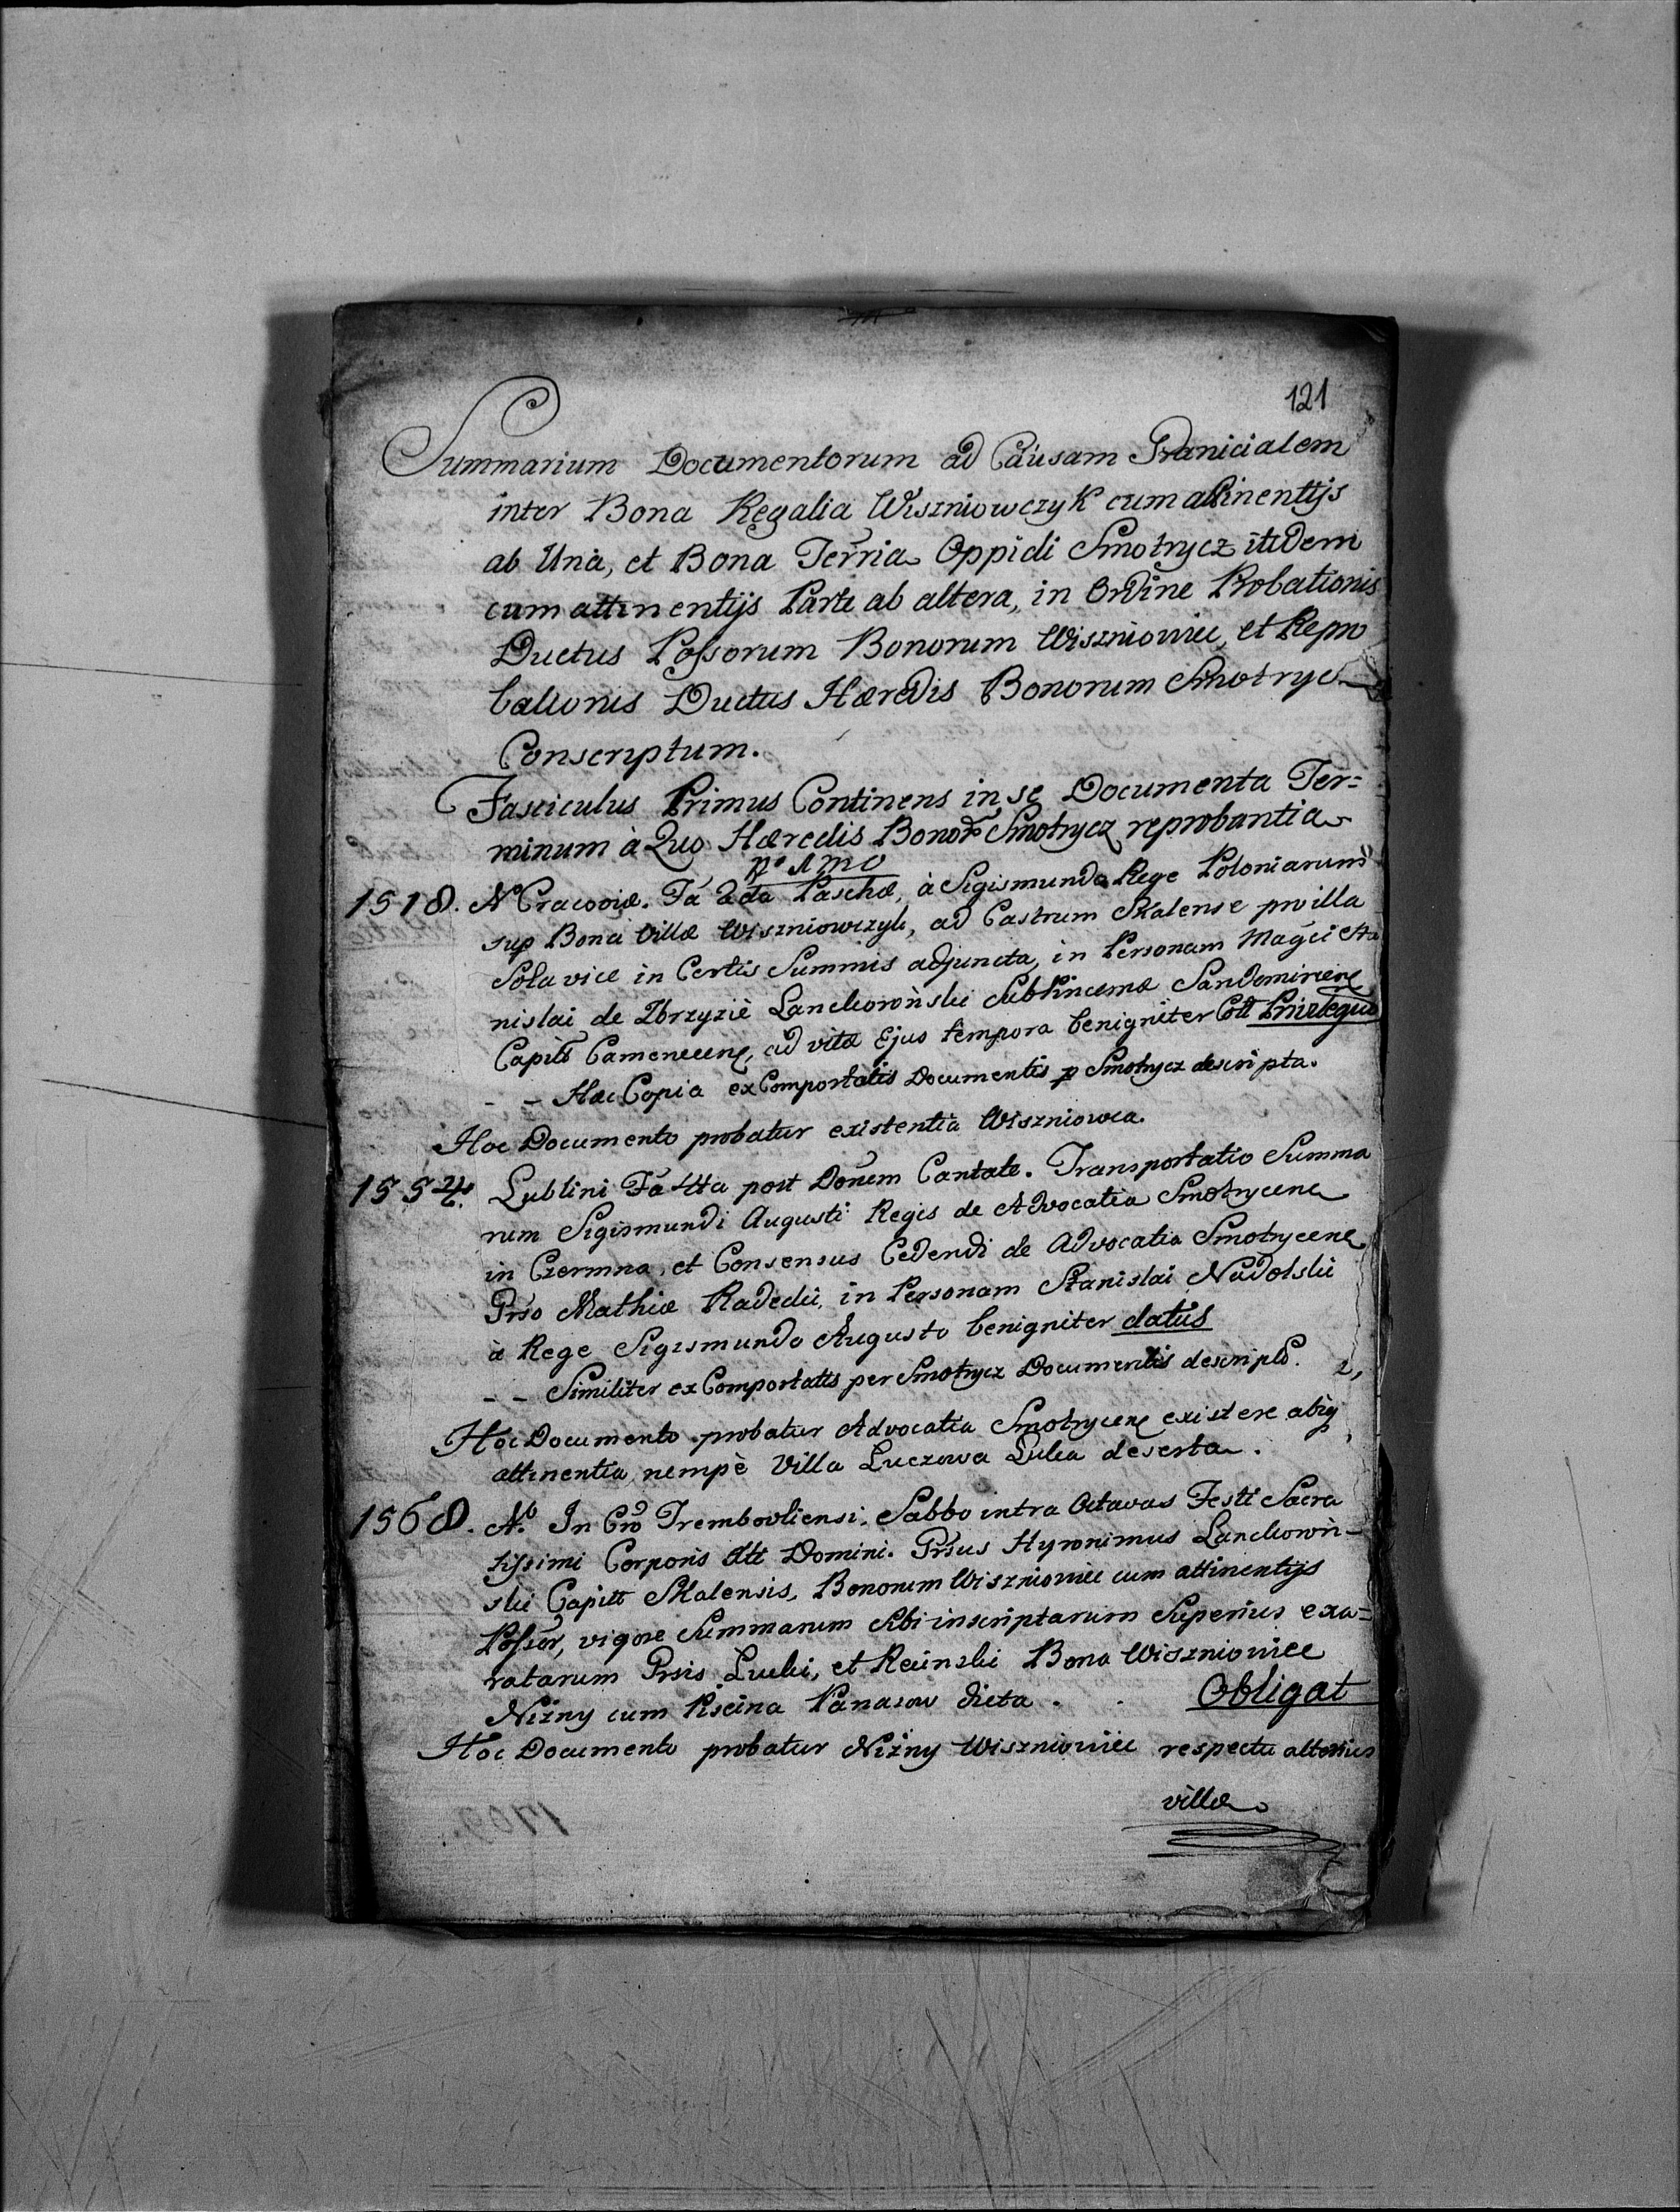 121
Summarium Documentorum ad Causam Granicialem
inter Bona Regalia Wiszniowczyk cum attinentijs
ab Una, et Bona Terria Oppidi Smotrycz itidem
cum attinentijs Parte ab altera, in Ordine Probationis
Ductus Possorum Bonorum Wiszniowiec, et Repro
bationis Ductus Hæredis Bonorum Smotrycz
Conscriptum.
Fasciculus Primus Continens in se Documenta Ter=
minum à Quo Hæredis Bonor Smotrycz reprobantia
1518. No Cracoviæ. Fa 2da Paschæ, à Sigismundo Rege Poloniarum
sup Bona Villæ Wiszniowczyk, ad Castrum Skalense pro illa
Sola vice in Certis Summis adjuncta, in Personam Magci Sta
nislai de Zbrzyzie Lanckoroński Subpincernæ Sandomirien
Capit Camenecen, ad vitæ Ejus tempora benigniter Coll Privilegium
- - Hæc Copia ex Comportatis Documentis p Smotrycz descripta.
Hoc Documento probatur existentia Wiszniowca.
1554. Lublini Fa 4ta post Donem Cantate. Transportatio Summa
rum Sigismundi Augusti Regis de Advocatia Smotrycen
in Czermna, et Consensus Cedendi de Advocatia Smotrycen
Grso Mathiæ Radecki, in Personam Stanislai Nadolski
à Rege Sigismundo Augusto benigniter datus
- - Similiter ex Comportatis per Smotrycz Documentis descripto. 2,
Hoc Documento probatur Advocatia Smotrycen existere absq
attinentia, nempè Villa Luczowa Luka deserta.
1568. No In Cro Trembovliensi. Sabbo intra Octavas Festi Sacra
tissimi Corporis Xti Domini. Grsus Hyronimus Lanckoroń-
ski Capitt Skalensis, Bonorum Wiszniowiec cum attinentijs
Possor, vigore Summarum Sibi inscriptarum Superius exa=
ratarum Grsis Lucki, et Bona Wiszniowiec
Niżny cum Piscina Panasow dicta. . Obligat
Hoc Documento probatur Niżny Wiszniowiec respectu alterius
villæ